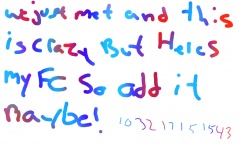 we just met and this
is crazy But Heres
my FC So add it
maybe! 103217151543